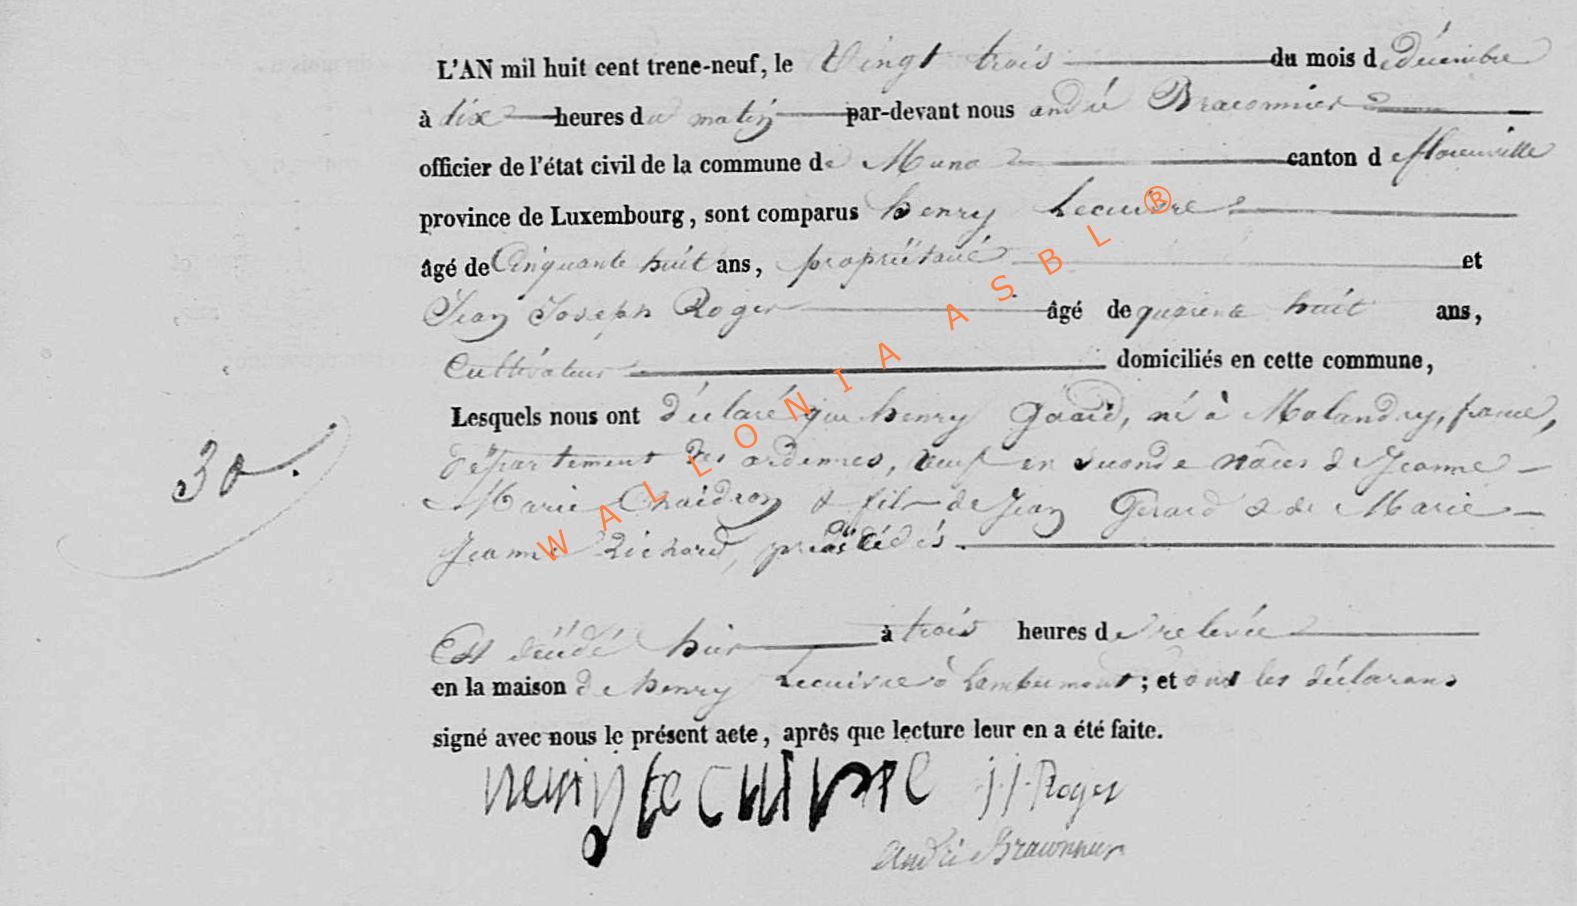 L'AN mil huit cent trene-neuf, le Vingt trois du mois de décembre
à dix heures du matin par-devant nous andré Braconnier
officier de l'état civil de la commune de Muno canton de florenville
province de Luxembourg, sont comparus henry Lecuivre
âgé de Cinquante huit ans, propriétaire et
Jean Joseph Roger âgé de quarente huit ans,
Cultivateur domiciliés en cette commune,
Lesquels nous ont déclaré que henry Gérard, né à Malandry, france,
département des ardennes, veuf en seconde noces de Jeanne
30.
Marie Chaidron & fils de Jean Gérard & de Marie
Jeanne Richard, décédés
Est décédé hier à trois heures de relevée
en la maison de henry Lecuivre à Lambermont; et ont les déclarans
signé avec nous le présent acte, après que lecture leur en a été faite.
henry lecuivre j.j. Roger
andré Braconnier
WALLONIA ASBL ®